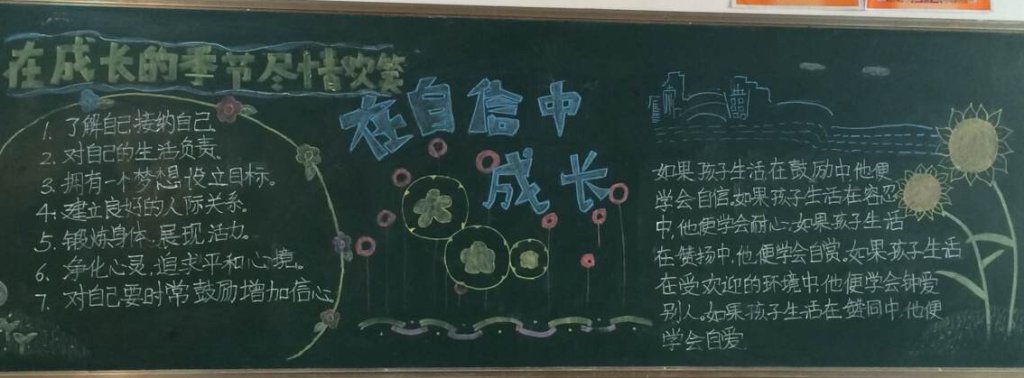 在成长的季节尽情欢笑
1. 了解自己接纳自己
2. 对自己的生活负责。
3. 拥有一个梦想设立目标。
4. 建立良好的人际关系。
5. 锻炼身体、展现活力。
6. 净化心灵,追求平和心境。
7. 对自己要时常鼓励增加信心
在自信中
成长
如果孩子生活在鼓励中他便
学会自信,如果孩子生活在容忍
中,他便学会耐心,如果孩子生活
在赞扬中,他便学会自赏,如果孩子生活
在受欢迎的环境中,他便学会钟爱
别人。如果孩子生活在赞同中,他便
学会自爱